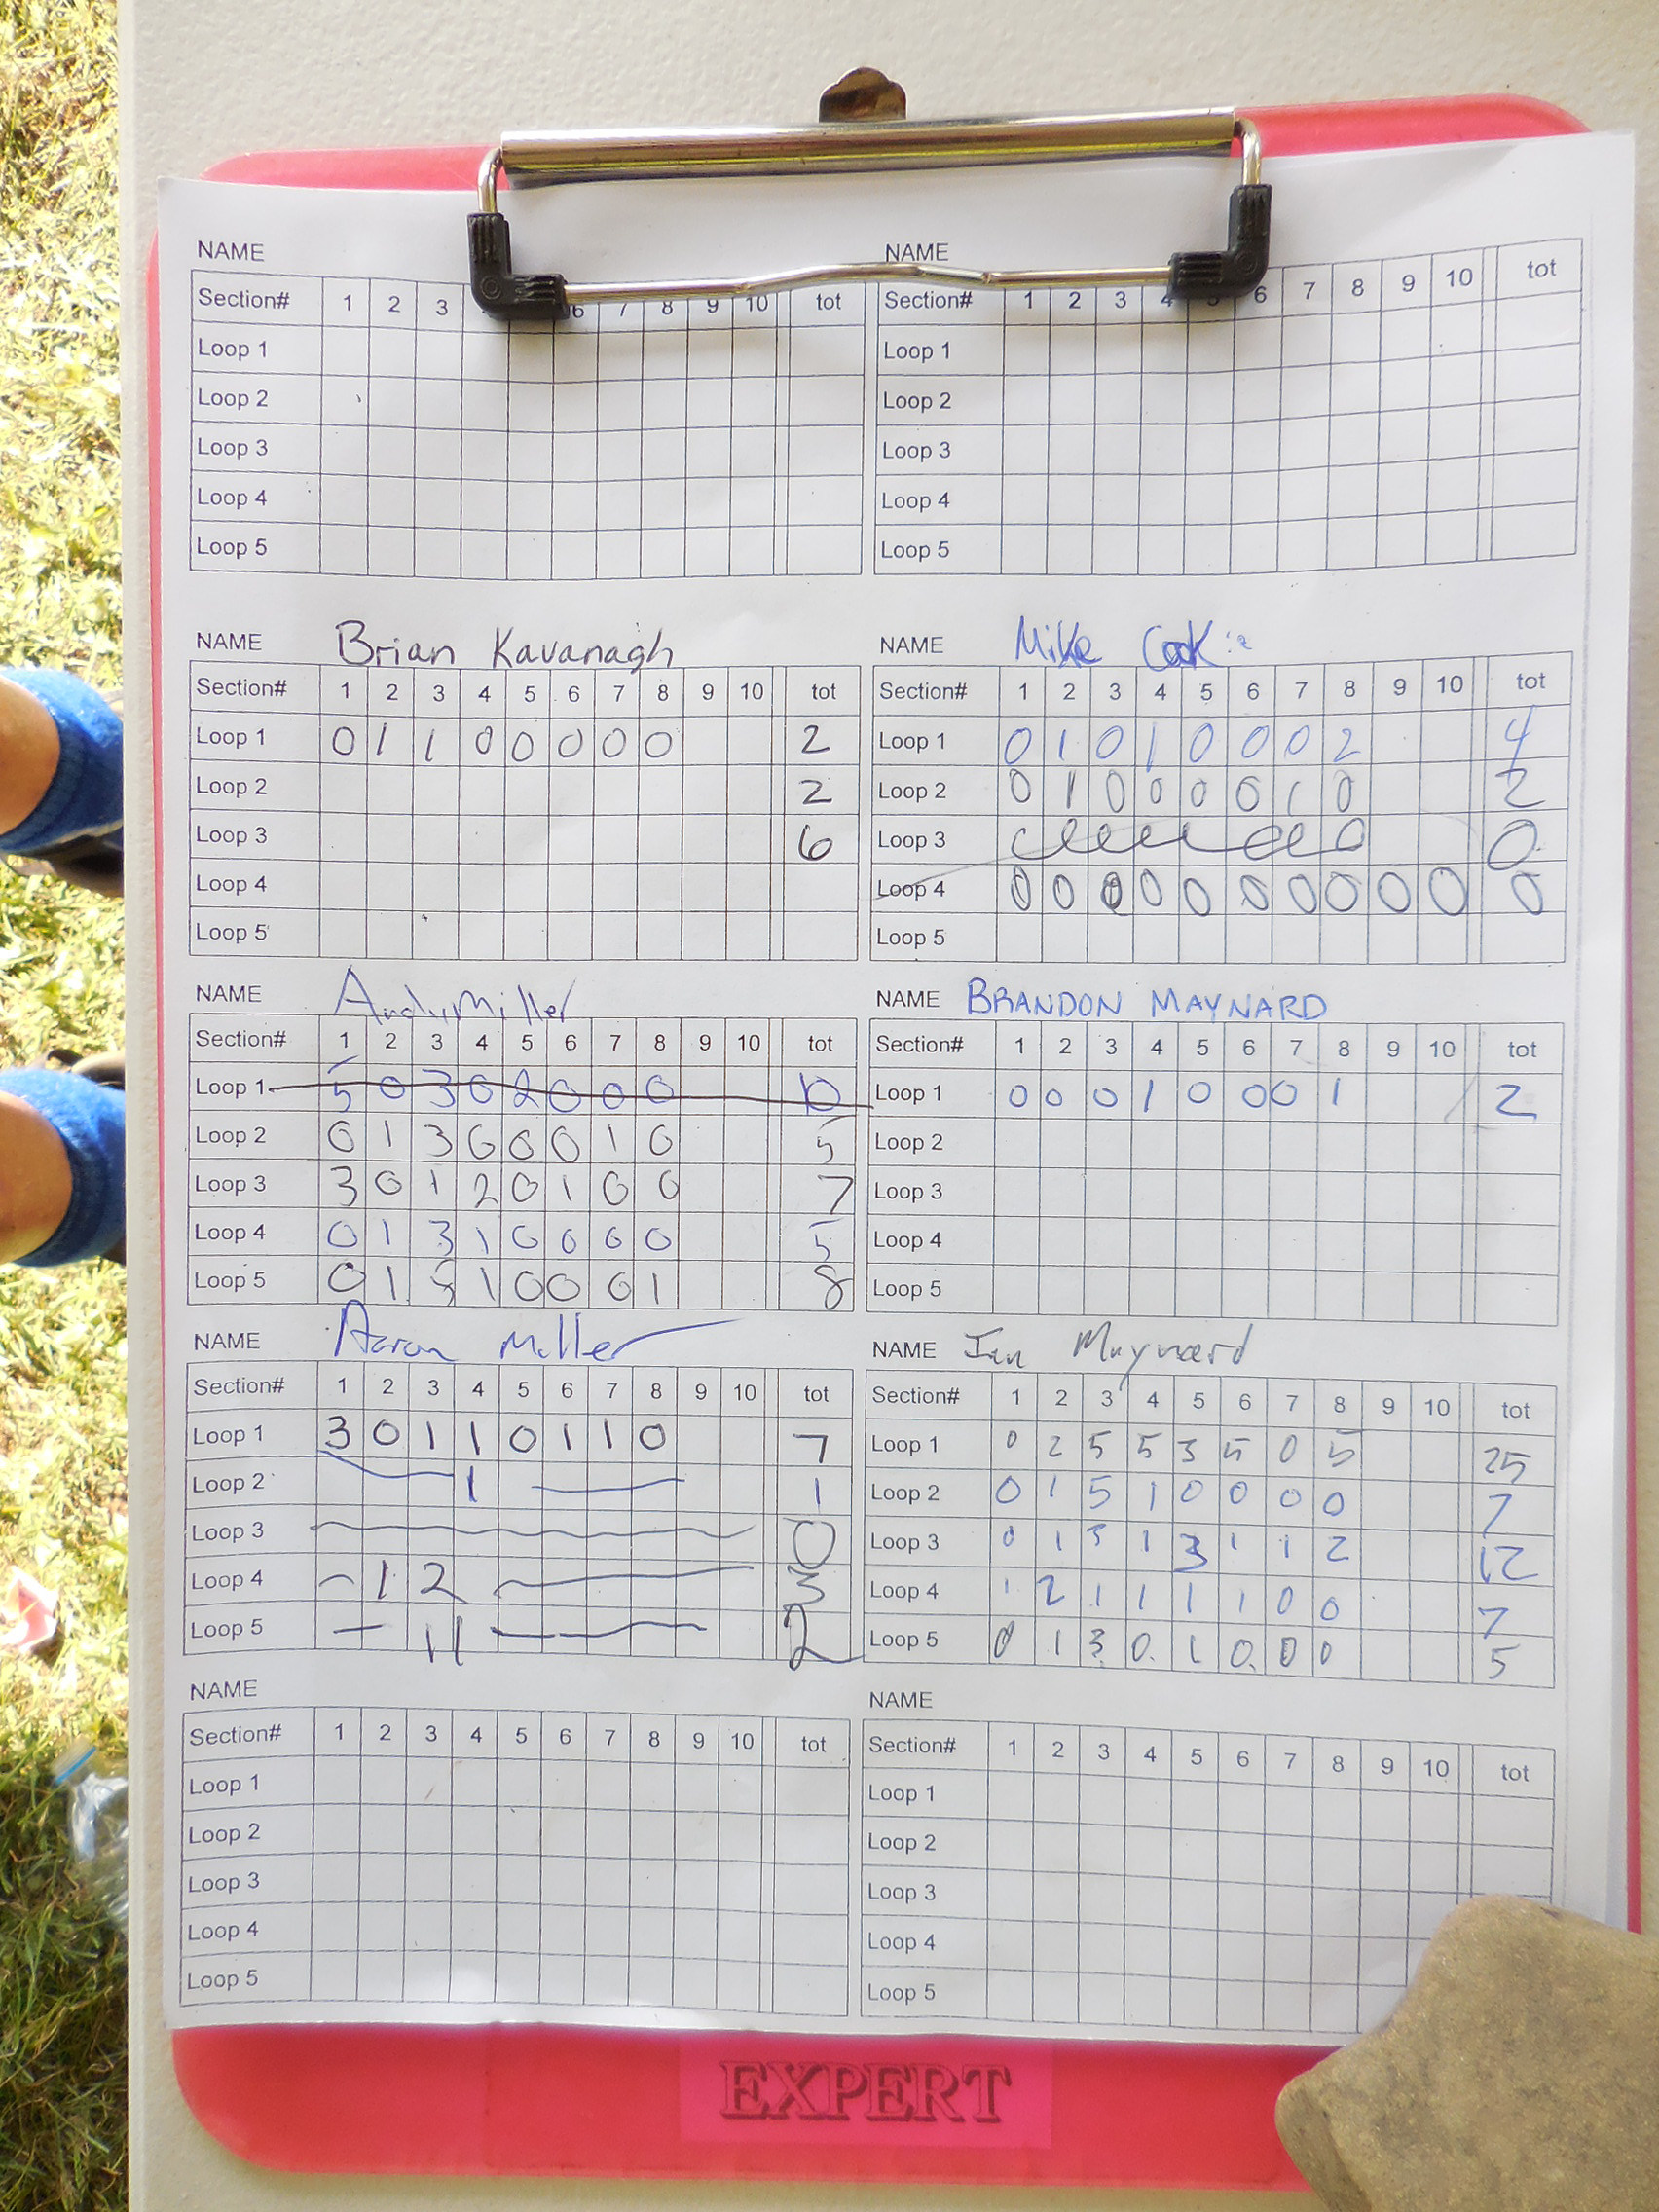 NAME
Section# 1 2 3 6 7 8 9 10 tot
Loop 1
Loop 2
Loop 3
Loop 4
Loop 5
NAME
Section# 1 2 3 4 5 6 7 8 9 10 tot
Loop 1
Loop 2
Loop 3
Loop 4
Loop 5
NAME Brian Kavanagh
Section# 1 2 3 4 5 6 7 8 9 10 tot
Loop 1 0 1 1 0 0 0 0 0 2
Loop 2 2
Loop 3 6
Loop 4
Loop 5
NAME Mike
Section# 1 2 3 4 5 6 7 8 9 10 tot
Loop 1 0 1 0 1 0 0 0 2 4
Loop 2 0 1 0 0 0 0 1 0 2
Loop 3 0
Loop 4 0 0 0 0 0 0 0 0 0 0 0
Loop 5
NAME Andy Miller
Section# 1 2 3 4 5 6 7 8 9 10 tot
Loop 1 5 0 3 0 2 0 0 0 10
Loop 2 0 1 3 0 0 0 1 0 5
Loop 3 3 0 1 2 0 1 0 0 7
Loop 4 0 1 3 1 0 0 0 0 5
Loop 5 0 1 5 1 0 0 0 1 8
NAME BRANDON MAYNARD
Section# 1 2 3 4 5 6 7 8 9 10 tot
Loop 1 0 0 0 1 0 0 0 1 2
Loop 2
Loop 3
Loop 4
Loop 5
NAME Aaron Miller
Section# 1 2 3 4 5 6 7 8 9 10 tot
Loop 1 3 0 1 1 0 1 1 0 7
Loop 2 1 1
Loop 3 0
Loop 4 1 2 3
Loop 5 1 1 2
NAME Ian Maynard
Section# 1 2 3 4 5 6 7 8 9 10 tot
Loop 1 0 2 5 5 3 5 0 5 25
Loop 2 0 1 5 1 0 0 0 0 7
Loop 3 0 1 3 1 3 1 1 2 12
Loop 4 1 2 1 1 1 1 0 0 7
Loop 5 0 1 3 0 1 0 0 0 5
NAME
Section# 1 2 3 4 5 6 7 8 9 10 tot
Loop 1
Loop 2
Loop 3
Loop 4
Loop 5
NAME
Section# 1 2 3 4 5 6 7 8 9 10 tot
Loop 1
Loop 2
Loop 3
Loop 4
Loop 5
EXPERT